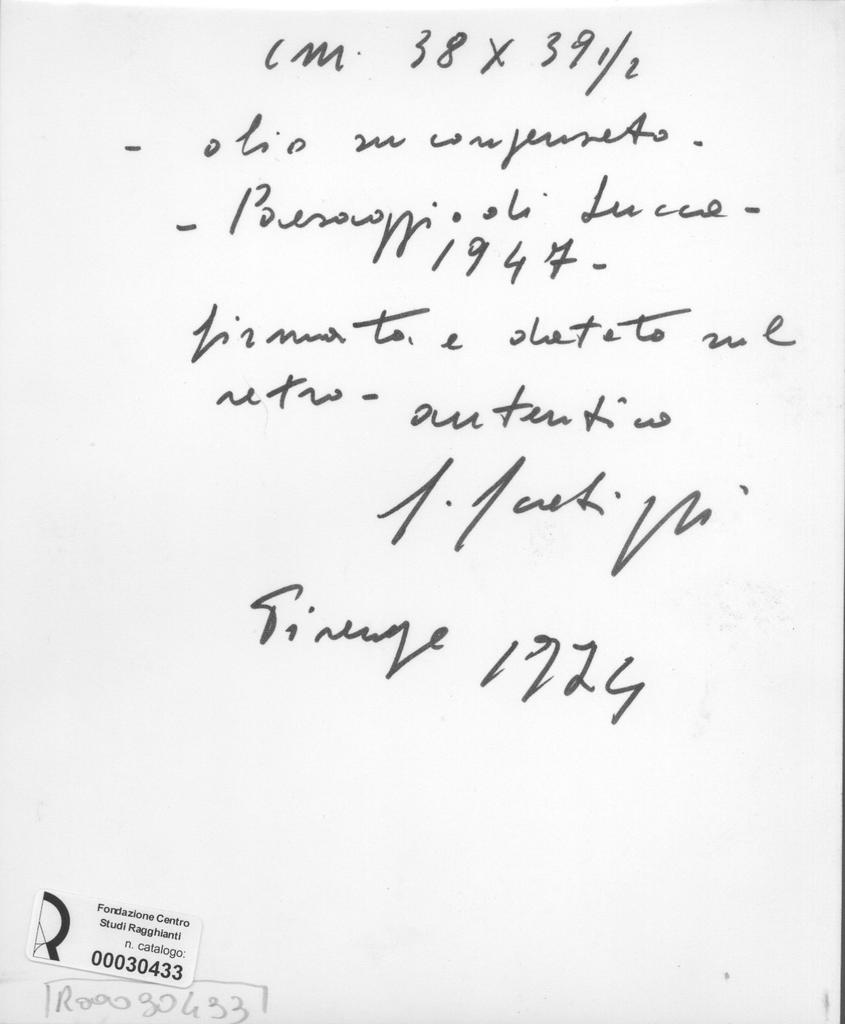 cm. 38 x 39 1/2
- olio su compensato.
- Paesaggio di Lucca -
1947 -
firmato e datato sul
retro - autentico
Firenze 1974
Fondazione Centro
Studi Ragghianti
n. catalogo:
00030433
R00030433